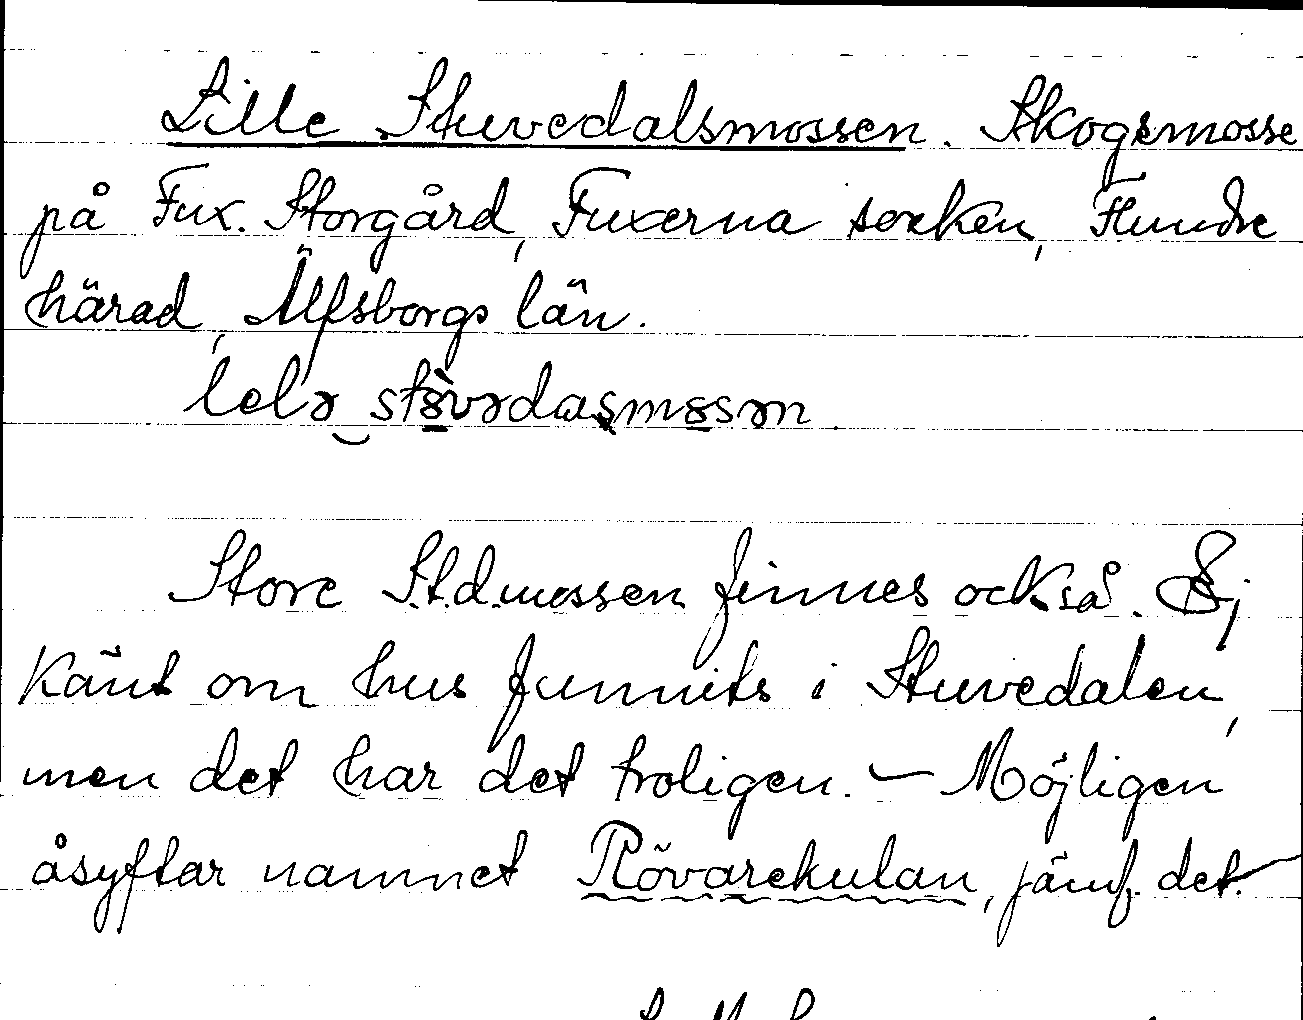 Lille Stuvedalsmossen. Skogsmosse
på Fux. Storgård, Fuxerna socken, Flundre
härad, Älfsborgs län.
lelə stövədasmosən
Store St.d.mossen finnes också. Ej
känt om hus funnits i Stuvedalen,
men det har det troligen. – Möjligen
åsyftar namnet Rövarekulan, jämf. det.